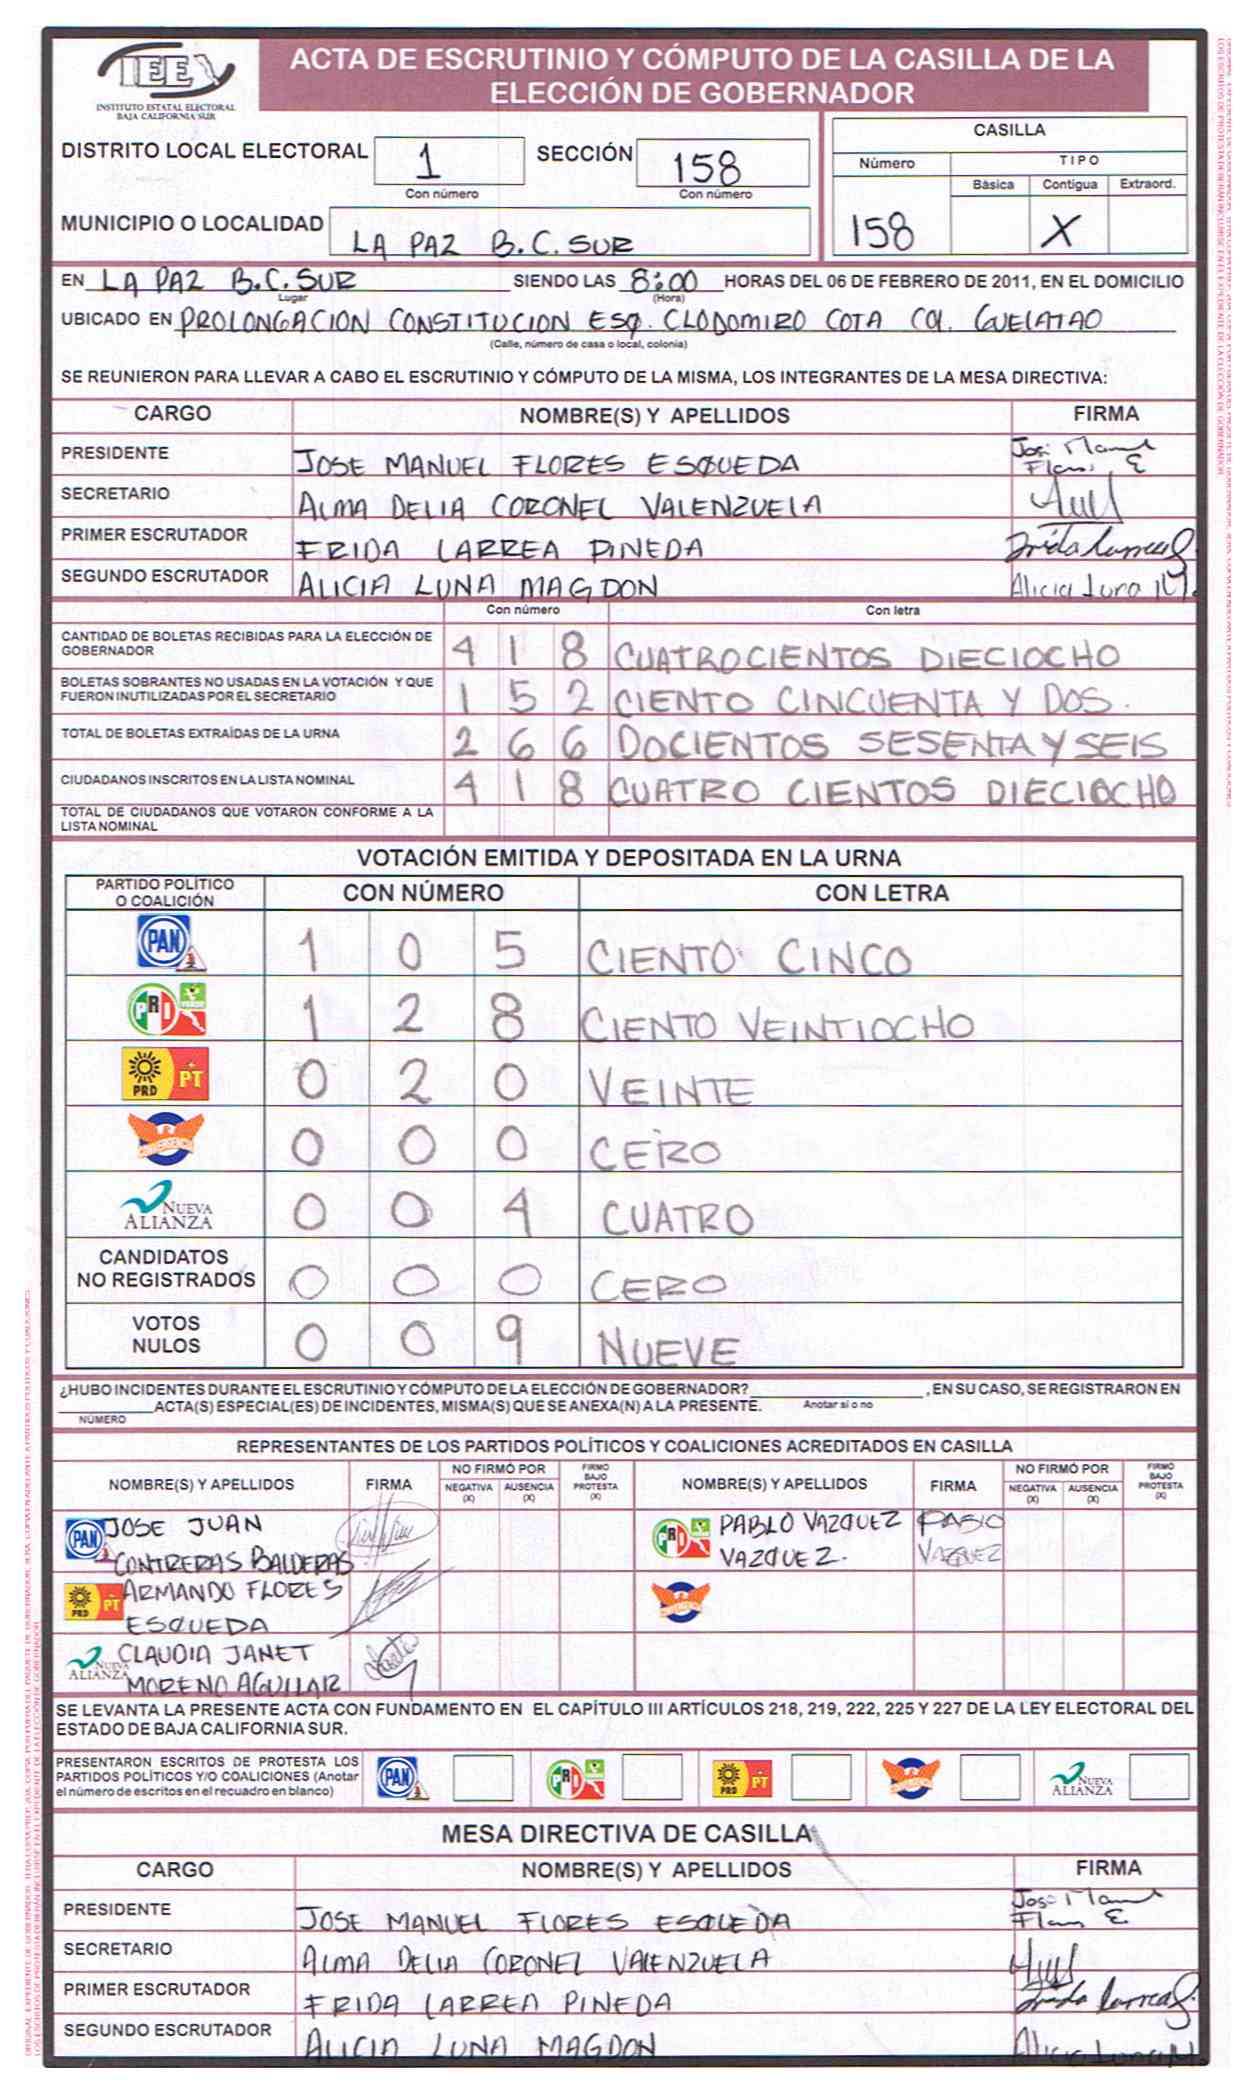 IEE
INSTITUTO ESTATAL ELECTORAL
BAJA CALIFORNIA SUR
ACTA DE ESCRUTINIO Y CÓMPUTO DE LA CASILLA DE LA
ELECCIÓN DE GOBERNADOR
DISTRITO LOCAL ELECTORAL 1 SECCIÓN 158
Con número Con número
MUNICIPIO O LOCALIDAD LA PAZ B.C.SUR
CASILLA
Número TIPO
Básica Contigua Extraord.
158 X
EN LA PAZ B.C.SUR SIENDO LAS 8:00 HORAS DEL 06 DE FEBRERO DE 2011, EN EL DOMICILIO
Lugar (Hora)
UBICADO EN PROLONGACION CONSTITUCION ESQ. CLODOMIRO COTA COL. GUELATAO
(Calle, número de casa o local, colonia)
SE REUNIERON PARA LLEVAR A CABO EL ESCRUTINIO Y CÓMPUTO DE LA MISMA, LOS INTEGRANTES DE LA MESA DIRECTIVA:
CARGO NOMBRE(S) Y APELLIDOS FIRMA
PRESIDENTE JOSE MANUEL FLORES ESQUEDA José Manuel Flores E
SECRETARIO ALMA DELIA CORONEL VALENZUELA
PRIMER ESCRUTADOR FRIDA LARREA PINEDA Frida Larrea
SEGUNDO ESCRUTADOR ALICIA LUNA MAGDON Alicia Luna M.
Con número Con letra
CANTIDAD DE BOLETAS RECIBIDAS PARA LA ELECCIÓN DE
GOBERNADOR 4 1 8 CUATROCIENTOS DIECIOCHO
BOLETAS SOBRANTES NO USADAS EN LA VOTACIÓN Y QUE
FUERON INUTILIZADAS POR EL SECRETARIO 1 5 2 CIENTO CINCUENTA Y DOS.
TOTAL DE BOLETAS EXTRAÍDAS DE LA URNA 2 6 6 DOCIENTOS SESENTA Y SEIS
CIUDADANOS INSCRITOS EN LA LISTA NOMINAL 4 1 8 CUATRO CIENTOS DIECIOCHO
TOTAL DE CIUDADANOS QUE VOTARON CONFORME A LA
LISTA NOMINAL
VOTACIÓN EMITIDA Y DEPOSITADA EN LA URNA
PARTIDO POLÍTICO
O COALICIÓN CON NÚMERO CON LETRA
PAN 1 0 5 CIENTO CINCO
PRI VERDE 1 2 8 CIENTO VEINTIOCHO
PRD PT 0 2 0 VEINTE
CONVERGENCIA 0 0 0 CERO
NUEVA ALIANZA 0 0 4 CUATRO
CANDIDATOS
NO REGISTRADOS 0 0 0 CERO
VOTOS
NULOS 0 0 9 NUEVE
¿HUBO INCIDENTES DURANTE EL ESCRUTINIO Y CÓMPUTO DE LA ELECCIÓN DE GOBERNADOR? , EN SU CASO, SE REGISTRARON EN
ACTA(S) ESPECIAL(ES) DE INCIDENTES, MISMA(S) QUE SE ANEXA(N) A LA PRESENTE. Anotar sí o no
NÚMERO
REPRESENTANTES DE LOS PARTIDOS POLÍTICOS Y COALICIONES ACREDITADOS EN CASILLA
NOMBRE(S) Y APELLIDOS FIRMA NO FIRMÓ POR NEGATIVA (X) AUSENCIA (X) FIRMO BAJO PROTESTA (X) NOMBRE(S) Y APELLIDOS FIRMA NO FIRMÓ POR NEGATIVA (X) AUSENCIA (X) FIRMO BAJO PROTESTA (X)
PAN JOSE JUAN PRI PABLO VAZQUEZ PABLO
CONTRERAS BALDERAS VAZQUEZ. VAZQUEZ
PRD PT ARMANDO FLORES CONVERGENCIA
ESQUEDA
NUEVA ALIANZA CLAUDIA JANET
MORENO AGUILAR
SE LEVANTA LA PRESENTE ACTA CON FUNDAMENTO EN EL CAPÍTULO III ARTÍCULOS 218, 219, 222, 225 Y 227 DE LA LEY ELECTORAL DEL
ESTADO DE BAJA CALIFORNIA SUR.
PRESENTARON ESCRITOS DE PROTESTA LOS
PARTIDOS POLÍTICOS Y/O COALICIONES (Anotar
el número de escritos en el recuadro en blanco)
PAN PRI PRD PT CONVERGENCIA NUEVA ALIANZA
MESA DIRECTIVA DE CASILLA
CARGO NOMBRE(S) Y APELLIDOS FIRMA
PRESIDENTE JOSE MANUEL FLORES ESQUEDA José Manuel Flores E
SECRETARIO ALMA DELIA CORONEL VALENZUELA
PRIMER ESCRUTADOR FRIDA LARREA PINEDA Frida Larrea
SEGUNDO ESCRUTADOR ALICIA LUNA MAGDON Alicia Luna M.